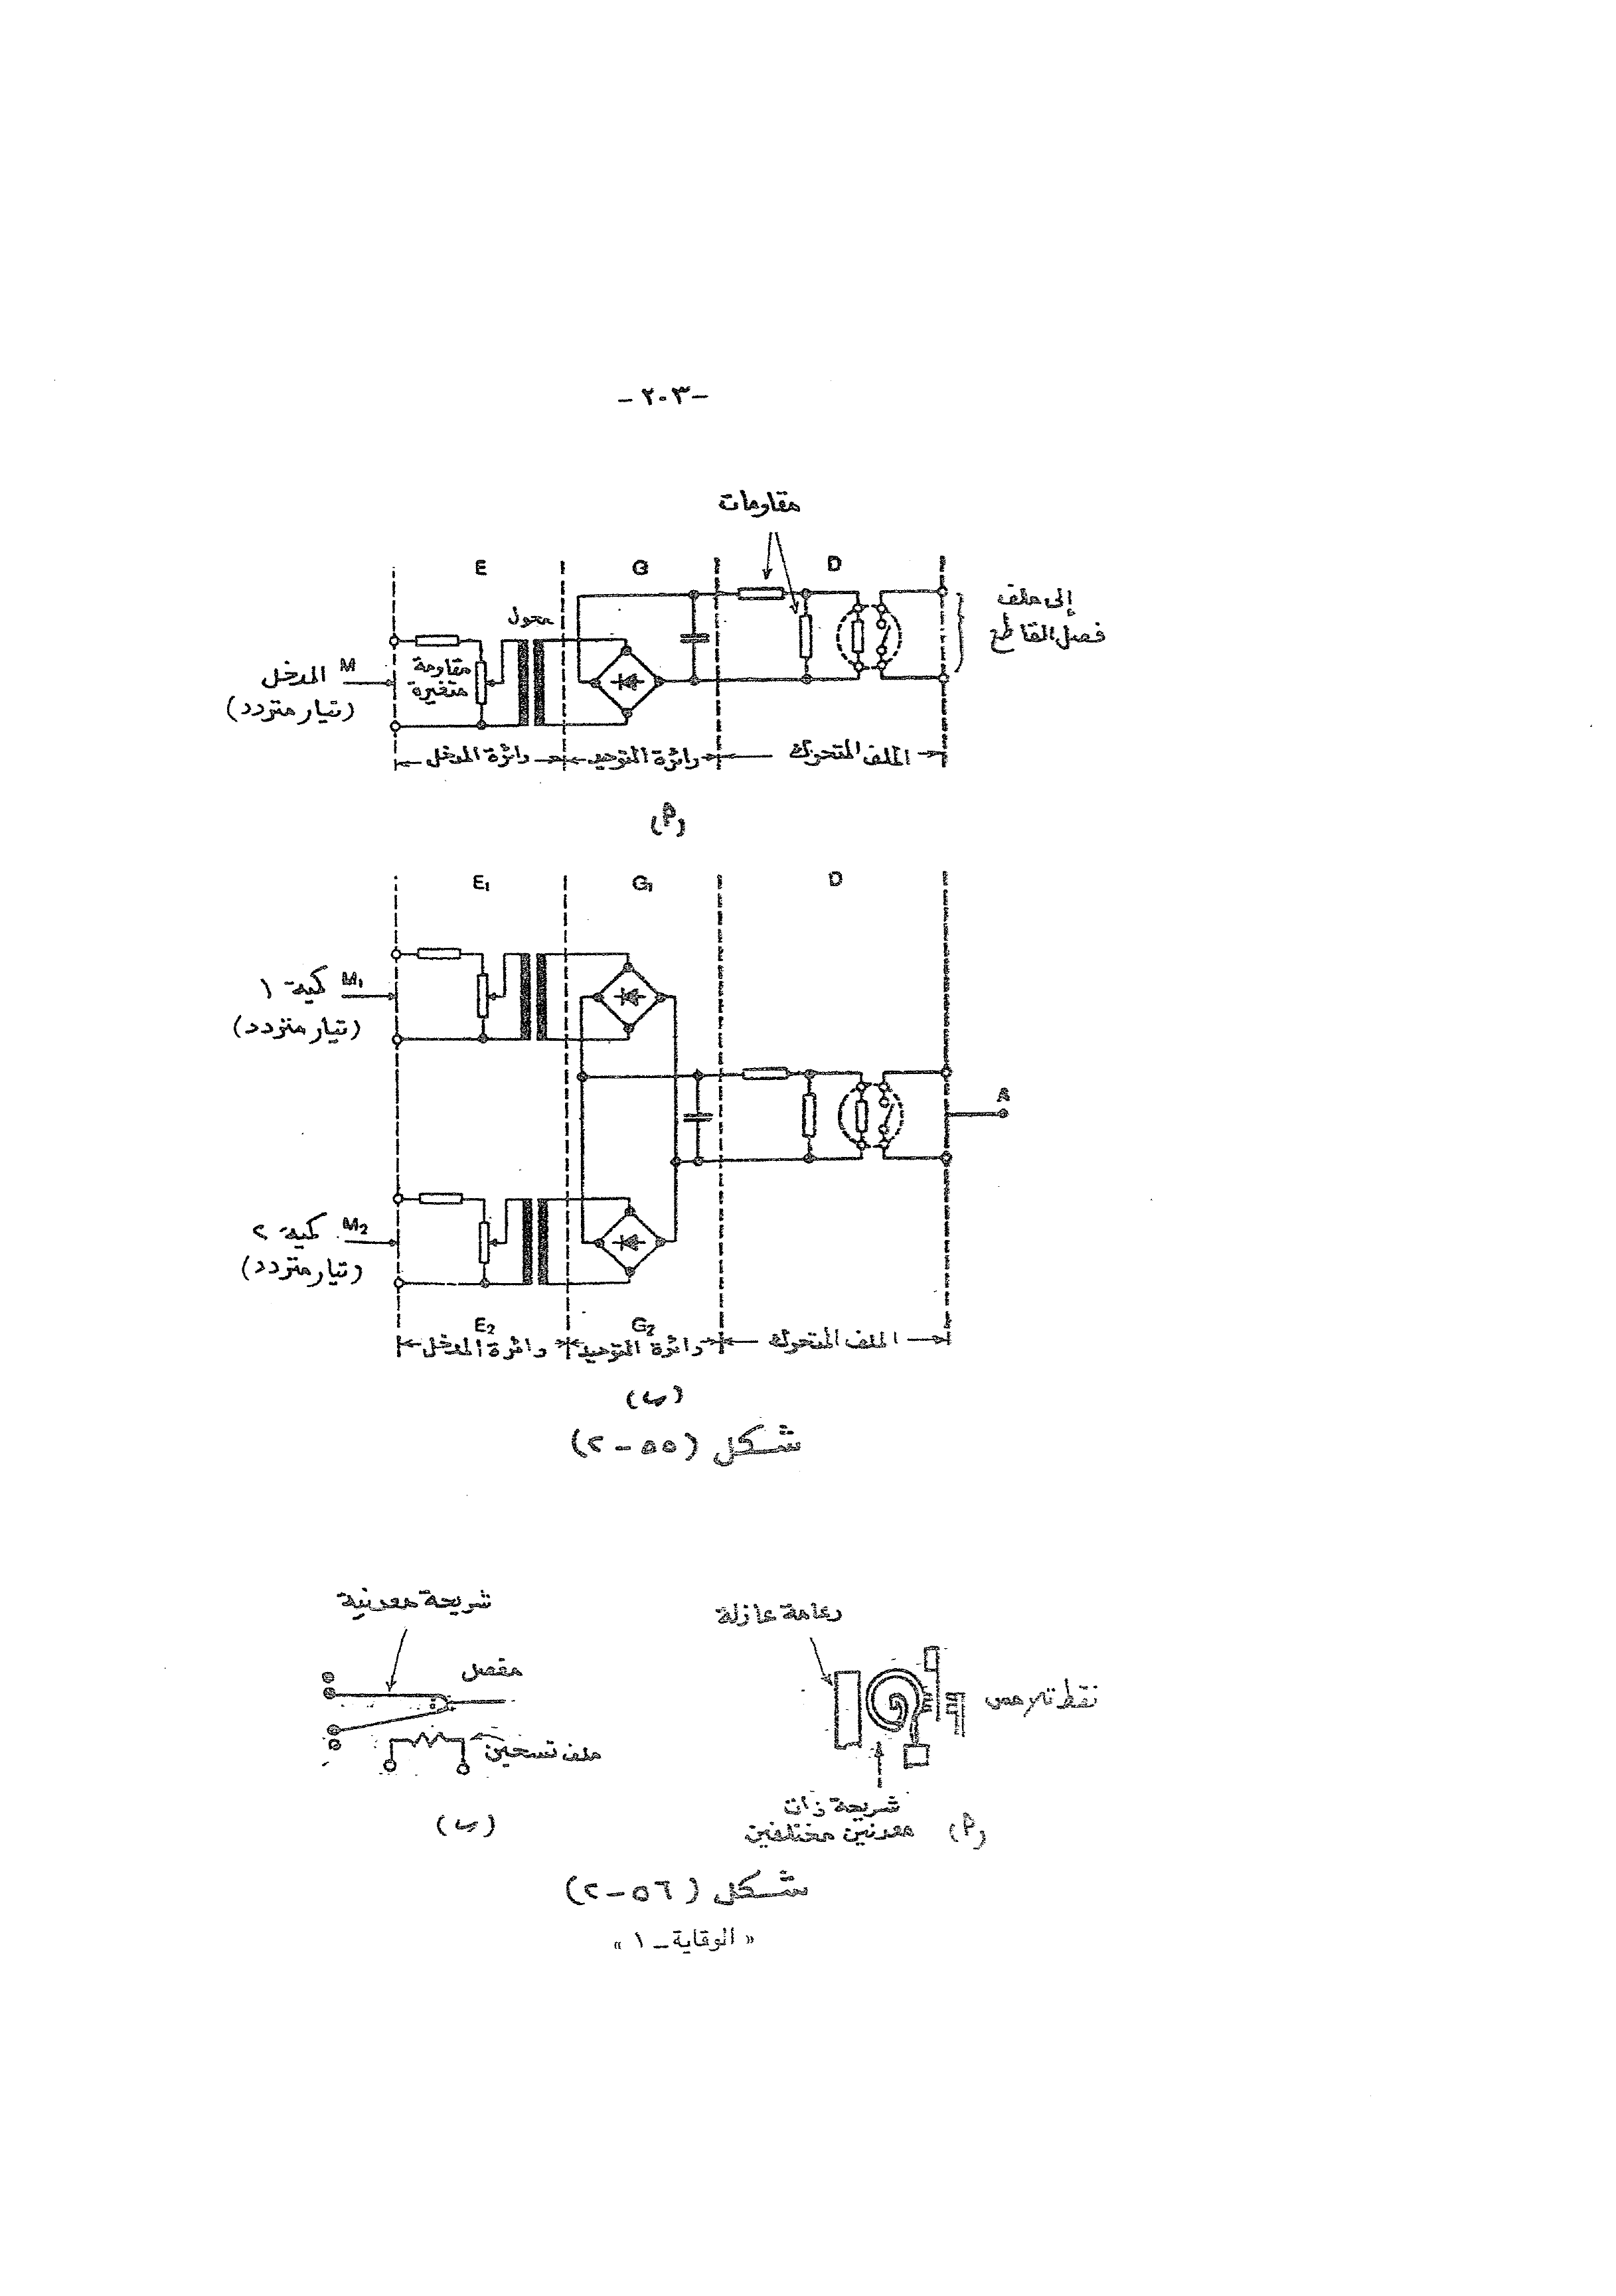 -٢٠٣-
مقاومات
E
G
D
محول
إلى ملف
فصل القاطع
M المدخل
(تيار متردد)
مقاومة
متغيرة
دائرة المدخل
دائرة التوحيد
الملف المتحرك
(أ)
E₁
G₁
D
M₁ كمية ١
(تيار متردد)
A
M₂ كمية ٢
(تيار متردد)
E₂
G₂
دائرة المدخل
دائرة التوحيد
الملف المتحرك
(ب)
شكل (٥٥-٢)
دعامة عازلة
نقط تلامس
شريحة ذات
معدنين مختلفين
(أ)
شريحة معدنية
مفصل
ملف تسخين
(ب)
شكل (٥٦-٢)
« الوقاية - ١ »